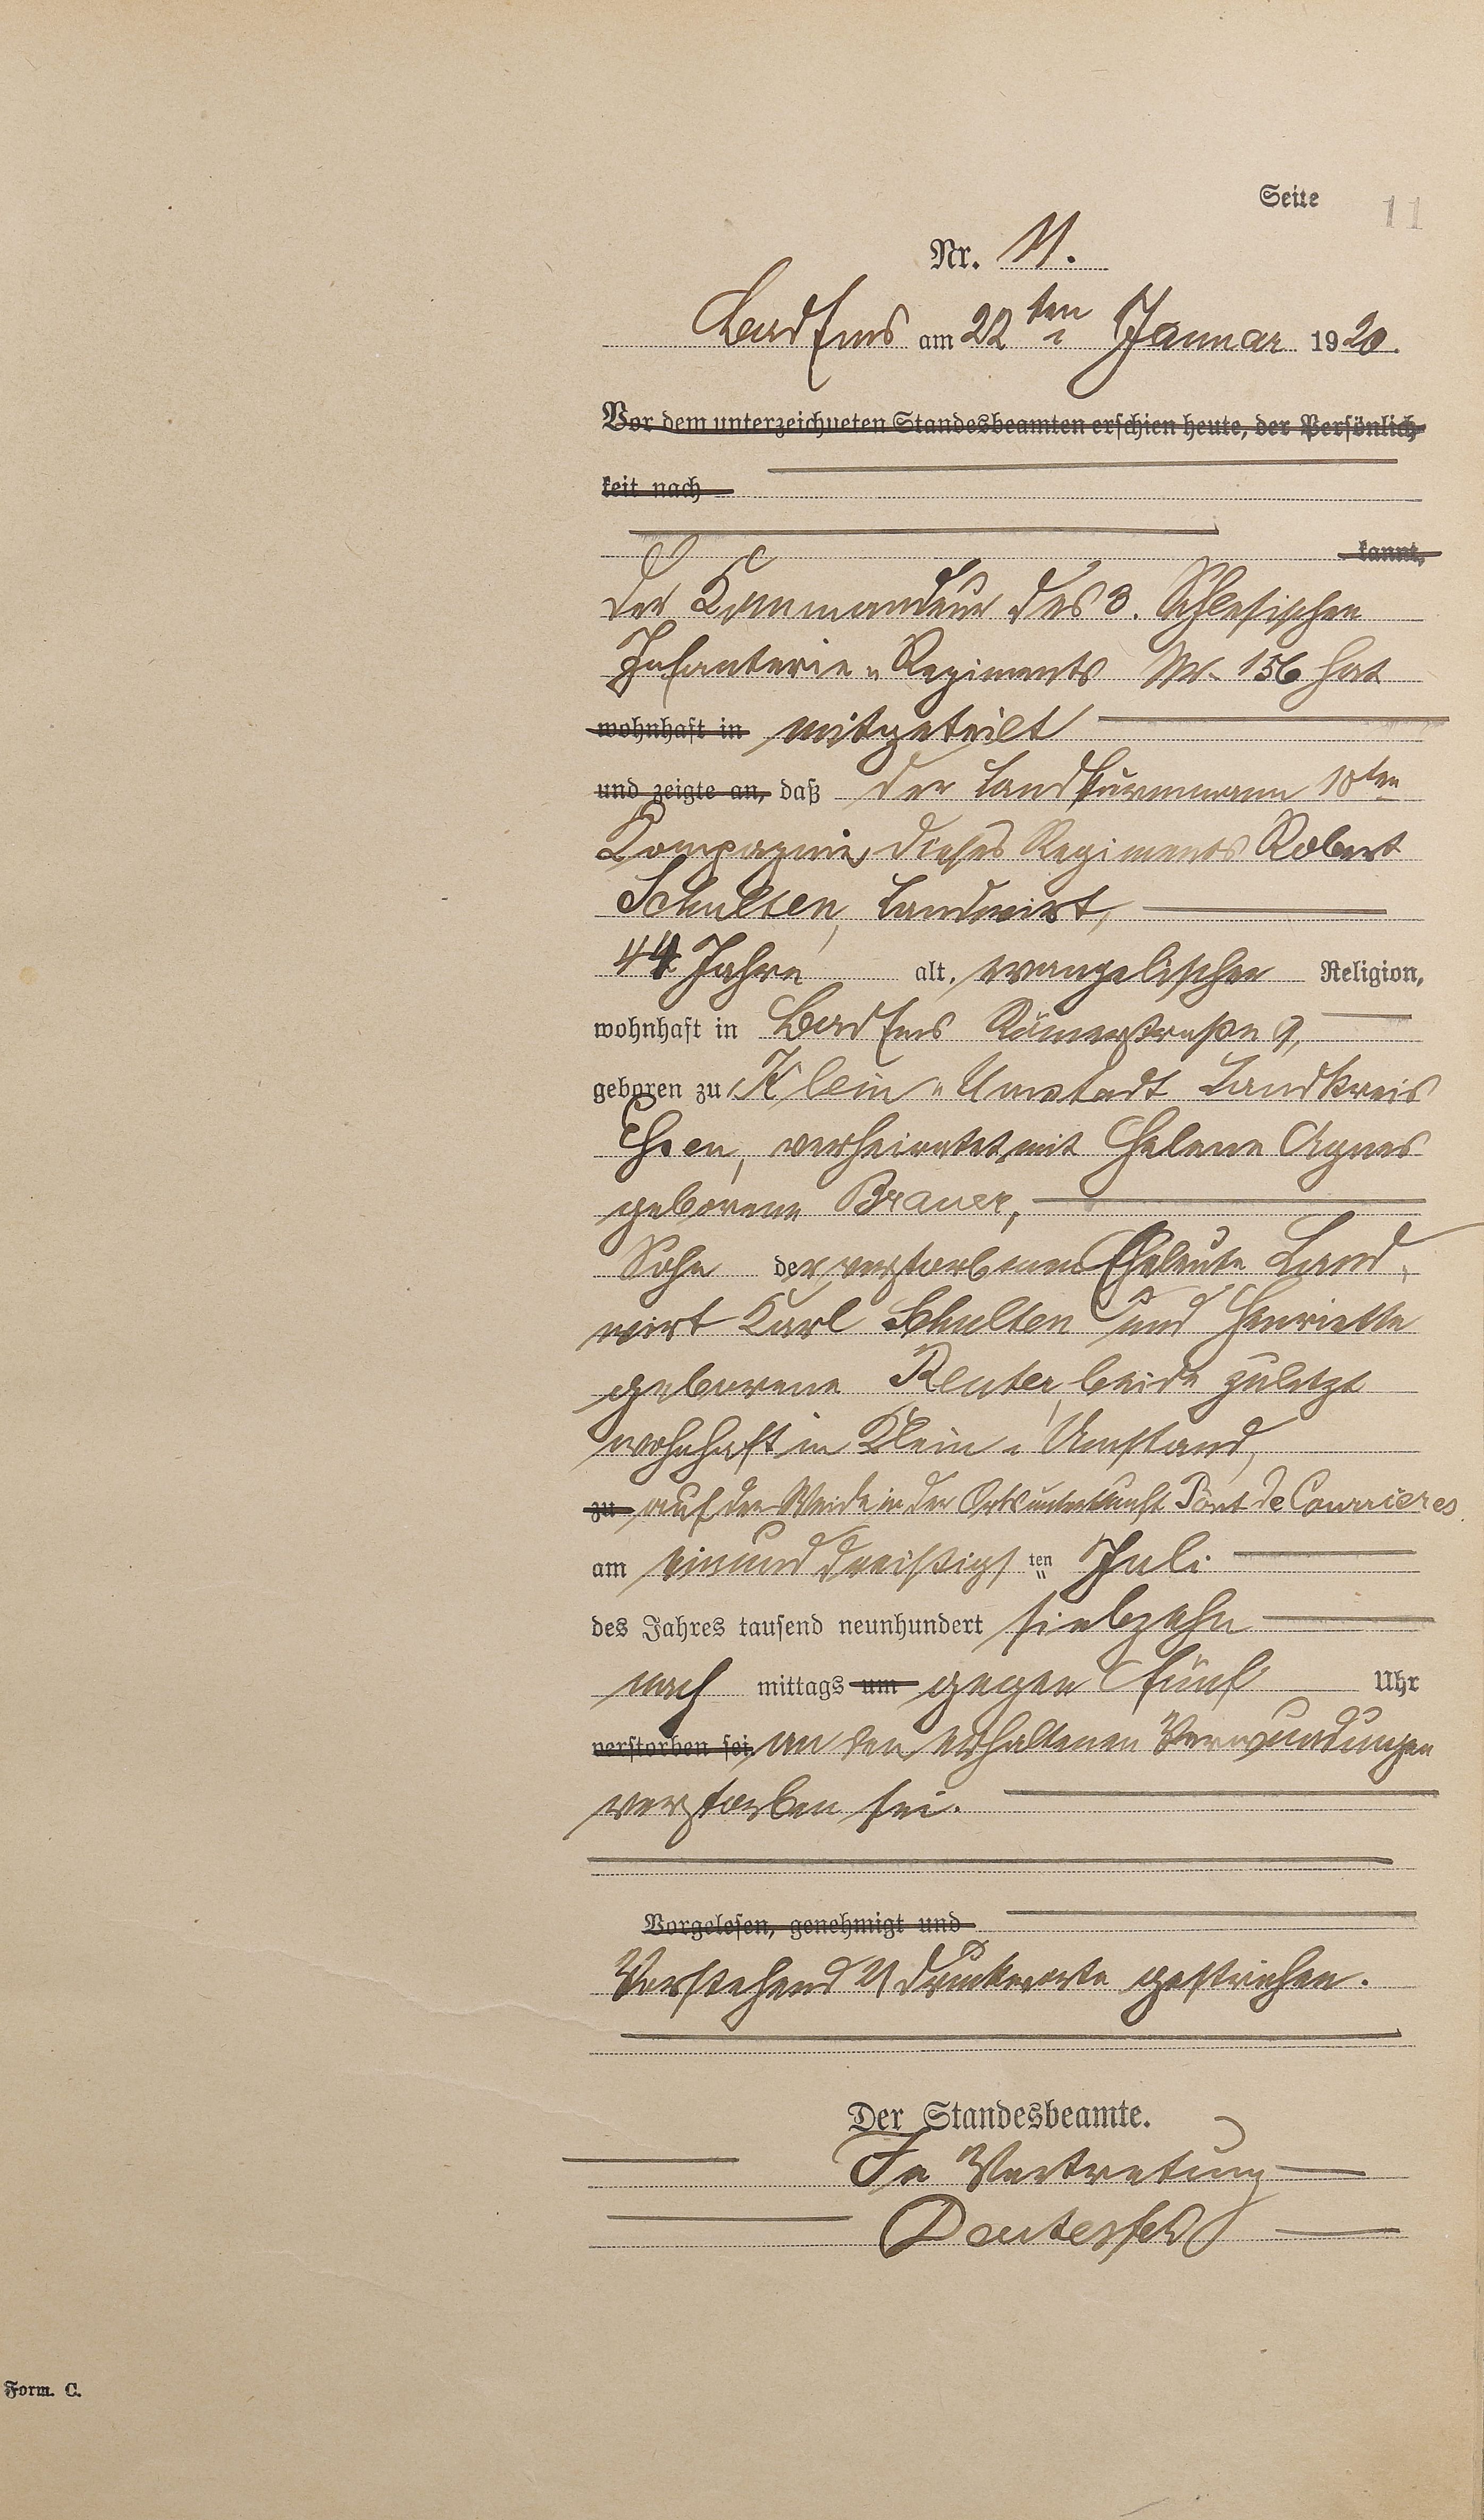 Seite 11
Nr. 11.
Bad Ems am 22ten Januar 1920.
Vor dem unterzeichneten Standesbeamten erschien heute, der Persönlich-
keit nach
kannt,
Der Kommandeur des 3. Schlesischen
Infanterie-Regiments Nr. 156 hat
wohnhaft in mitgeteilt
und zeigte an, daß der Landsturmmann 10ten
Kompagnie dieses Regiments Robert
Schulten, Landwirt,
44 Jahre alt, evangelischer Religion,
wohnhaft in Bad Ems Römerstraße 9,
geboren zu Klein-Umstadt Landkreis
Essen, verheiratet mit Helene Agnes
geborene Brauer,
Sohn der verstorbenen Eheleute Land-
wirt Karl Schulten und Henriette
geborene Reuter, beide zuletzt
wohnhaft in Klein-Umstand,
zu auf der Weide in der Ortsunterkunft Pont de Courrieres
am einunddreißigsten ten Juli
des Jahres tausend neunhundert siebzehn
nach mittags um gegen fünf Uhr
verstorben sei an den erhaltenen Verwundungen
verstorben sei.
Vorgelesen, genehmigt und
Vorstehend 21 Druckworte gestrichen.
Der Standesbeamte.
In Vertretung
Form. C.